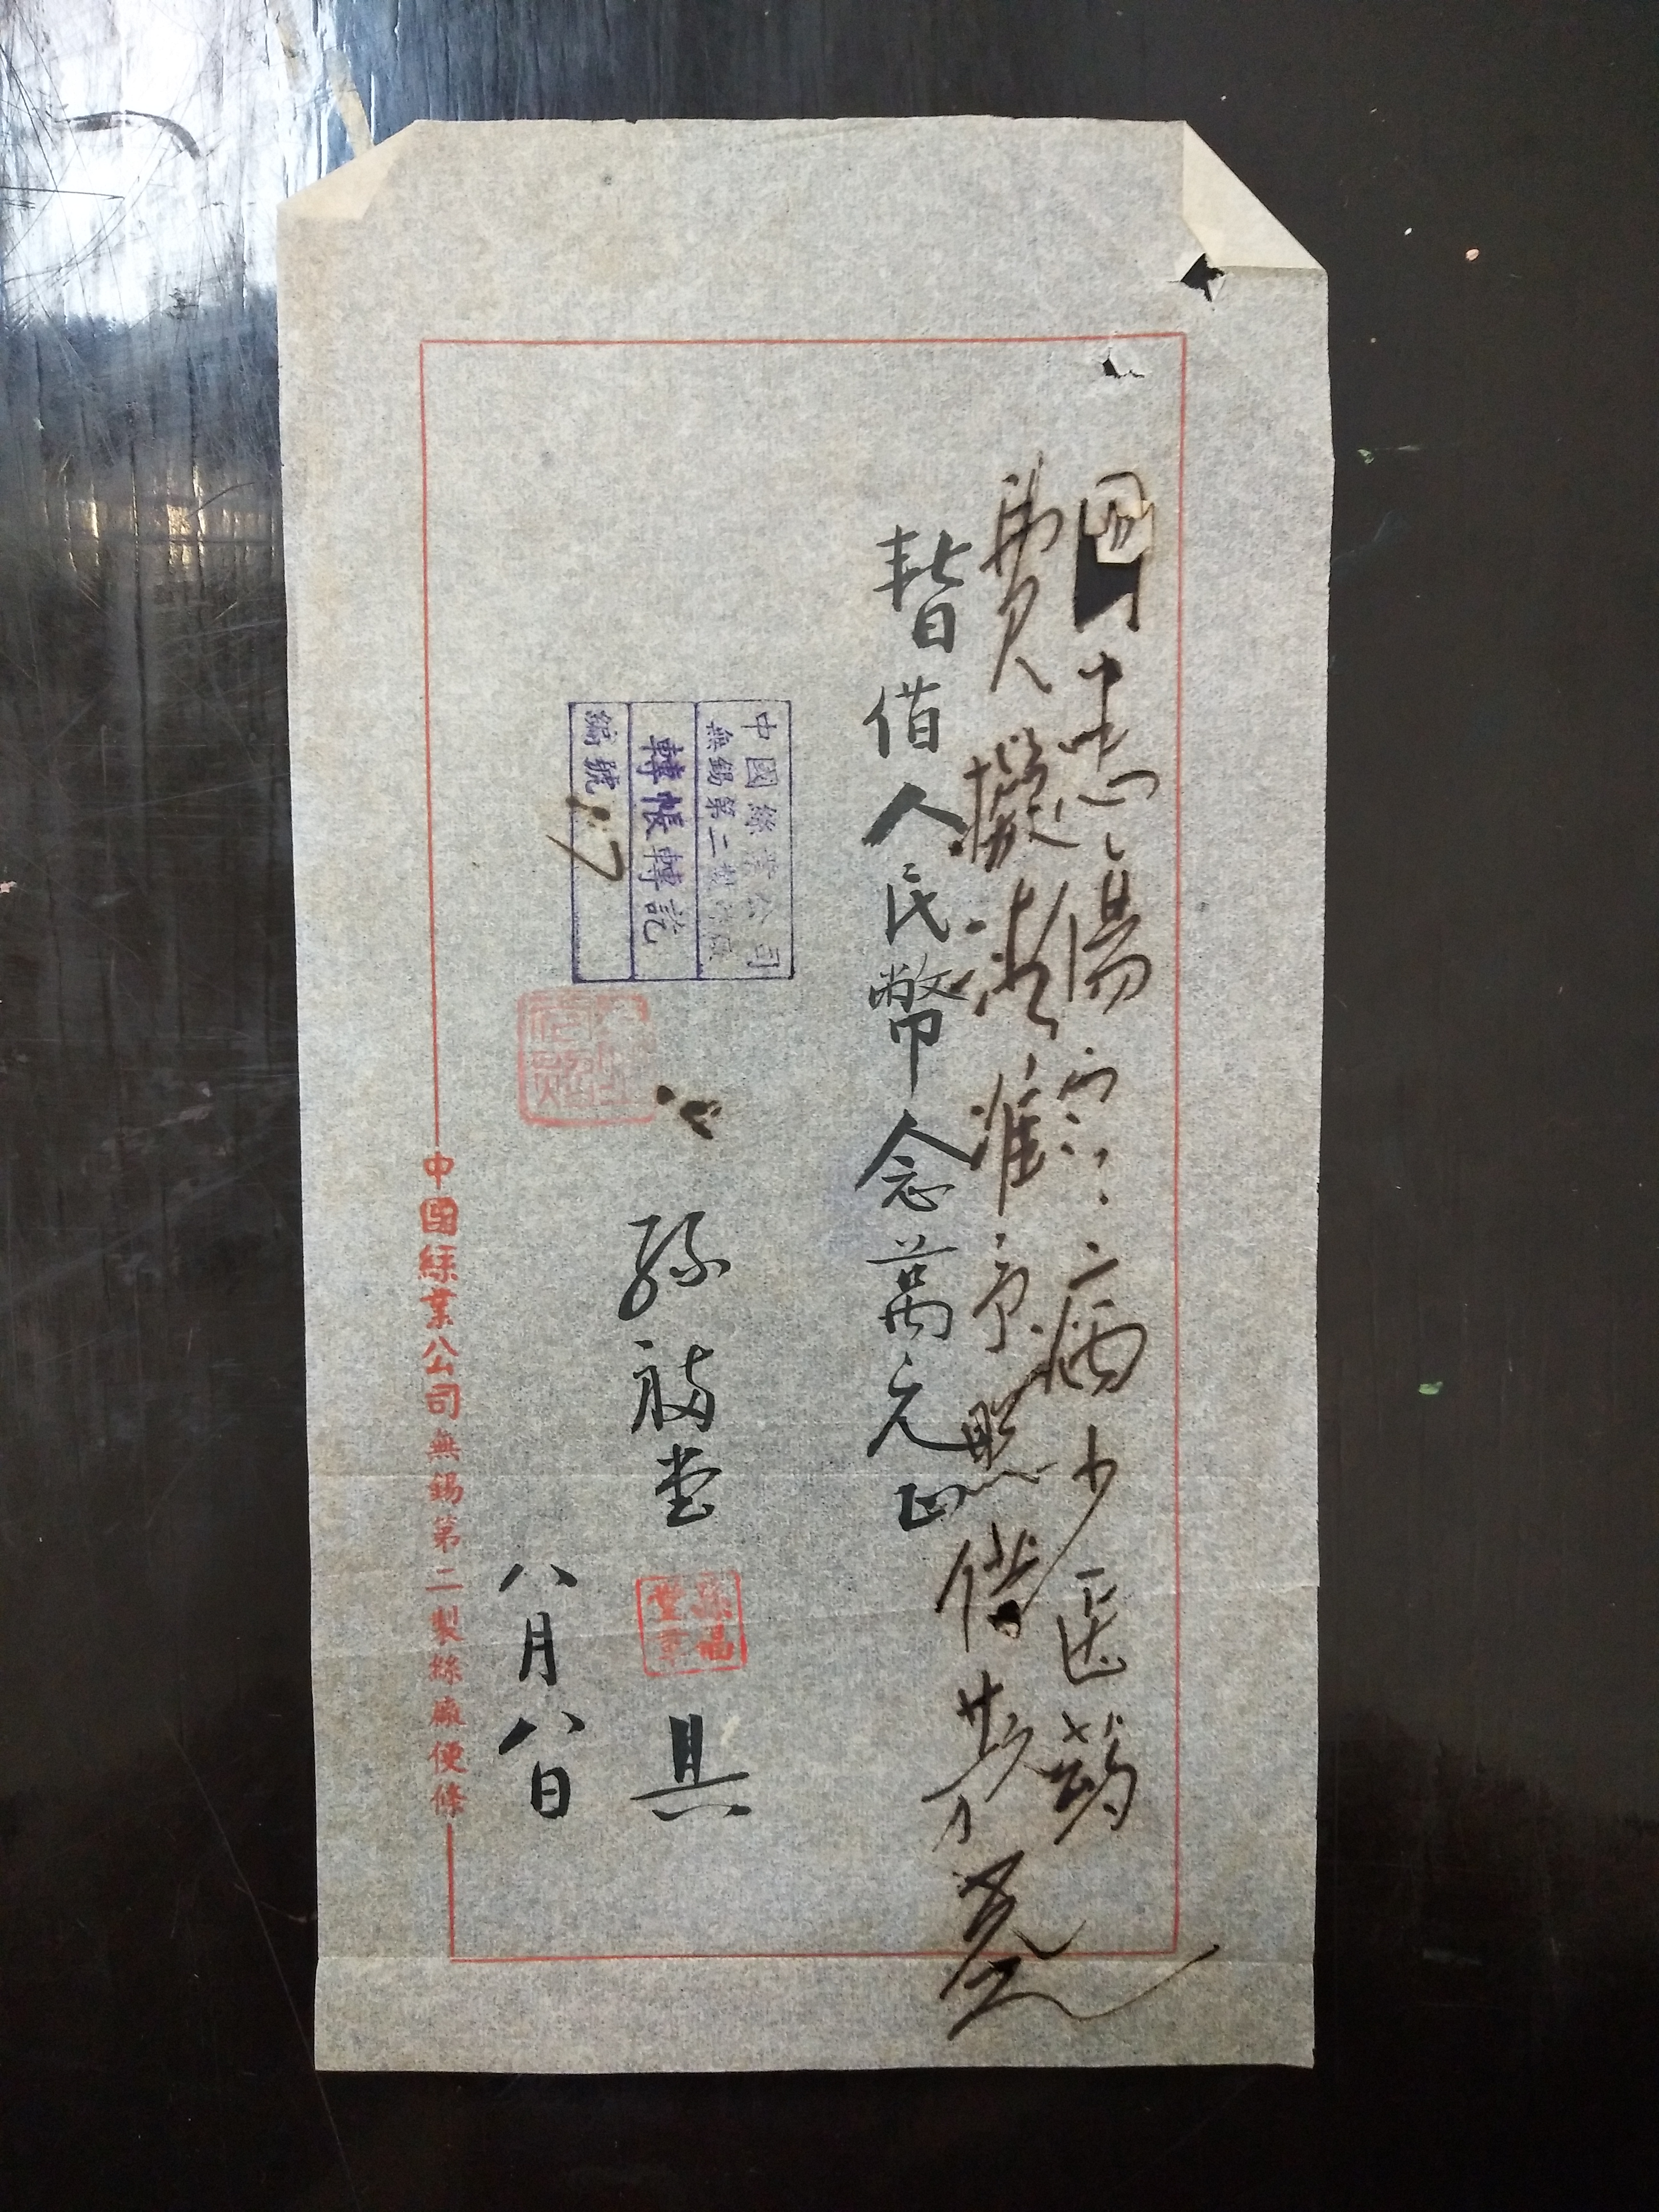 因患傷寒病少医药
費擬請准予照借
暫借人民幣念萬元正
中國絲業公司
無錫第二製絲廠
轉帳轉訖
編號 7
孫福堂 具
八月八日
中國絲業公司無錫第二製絲廠便條